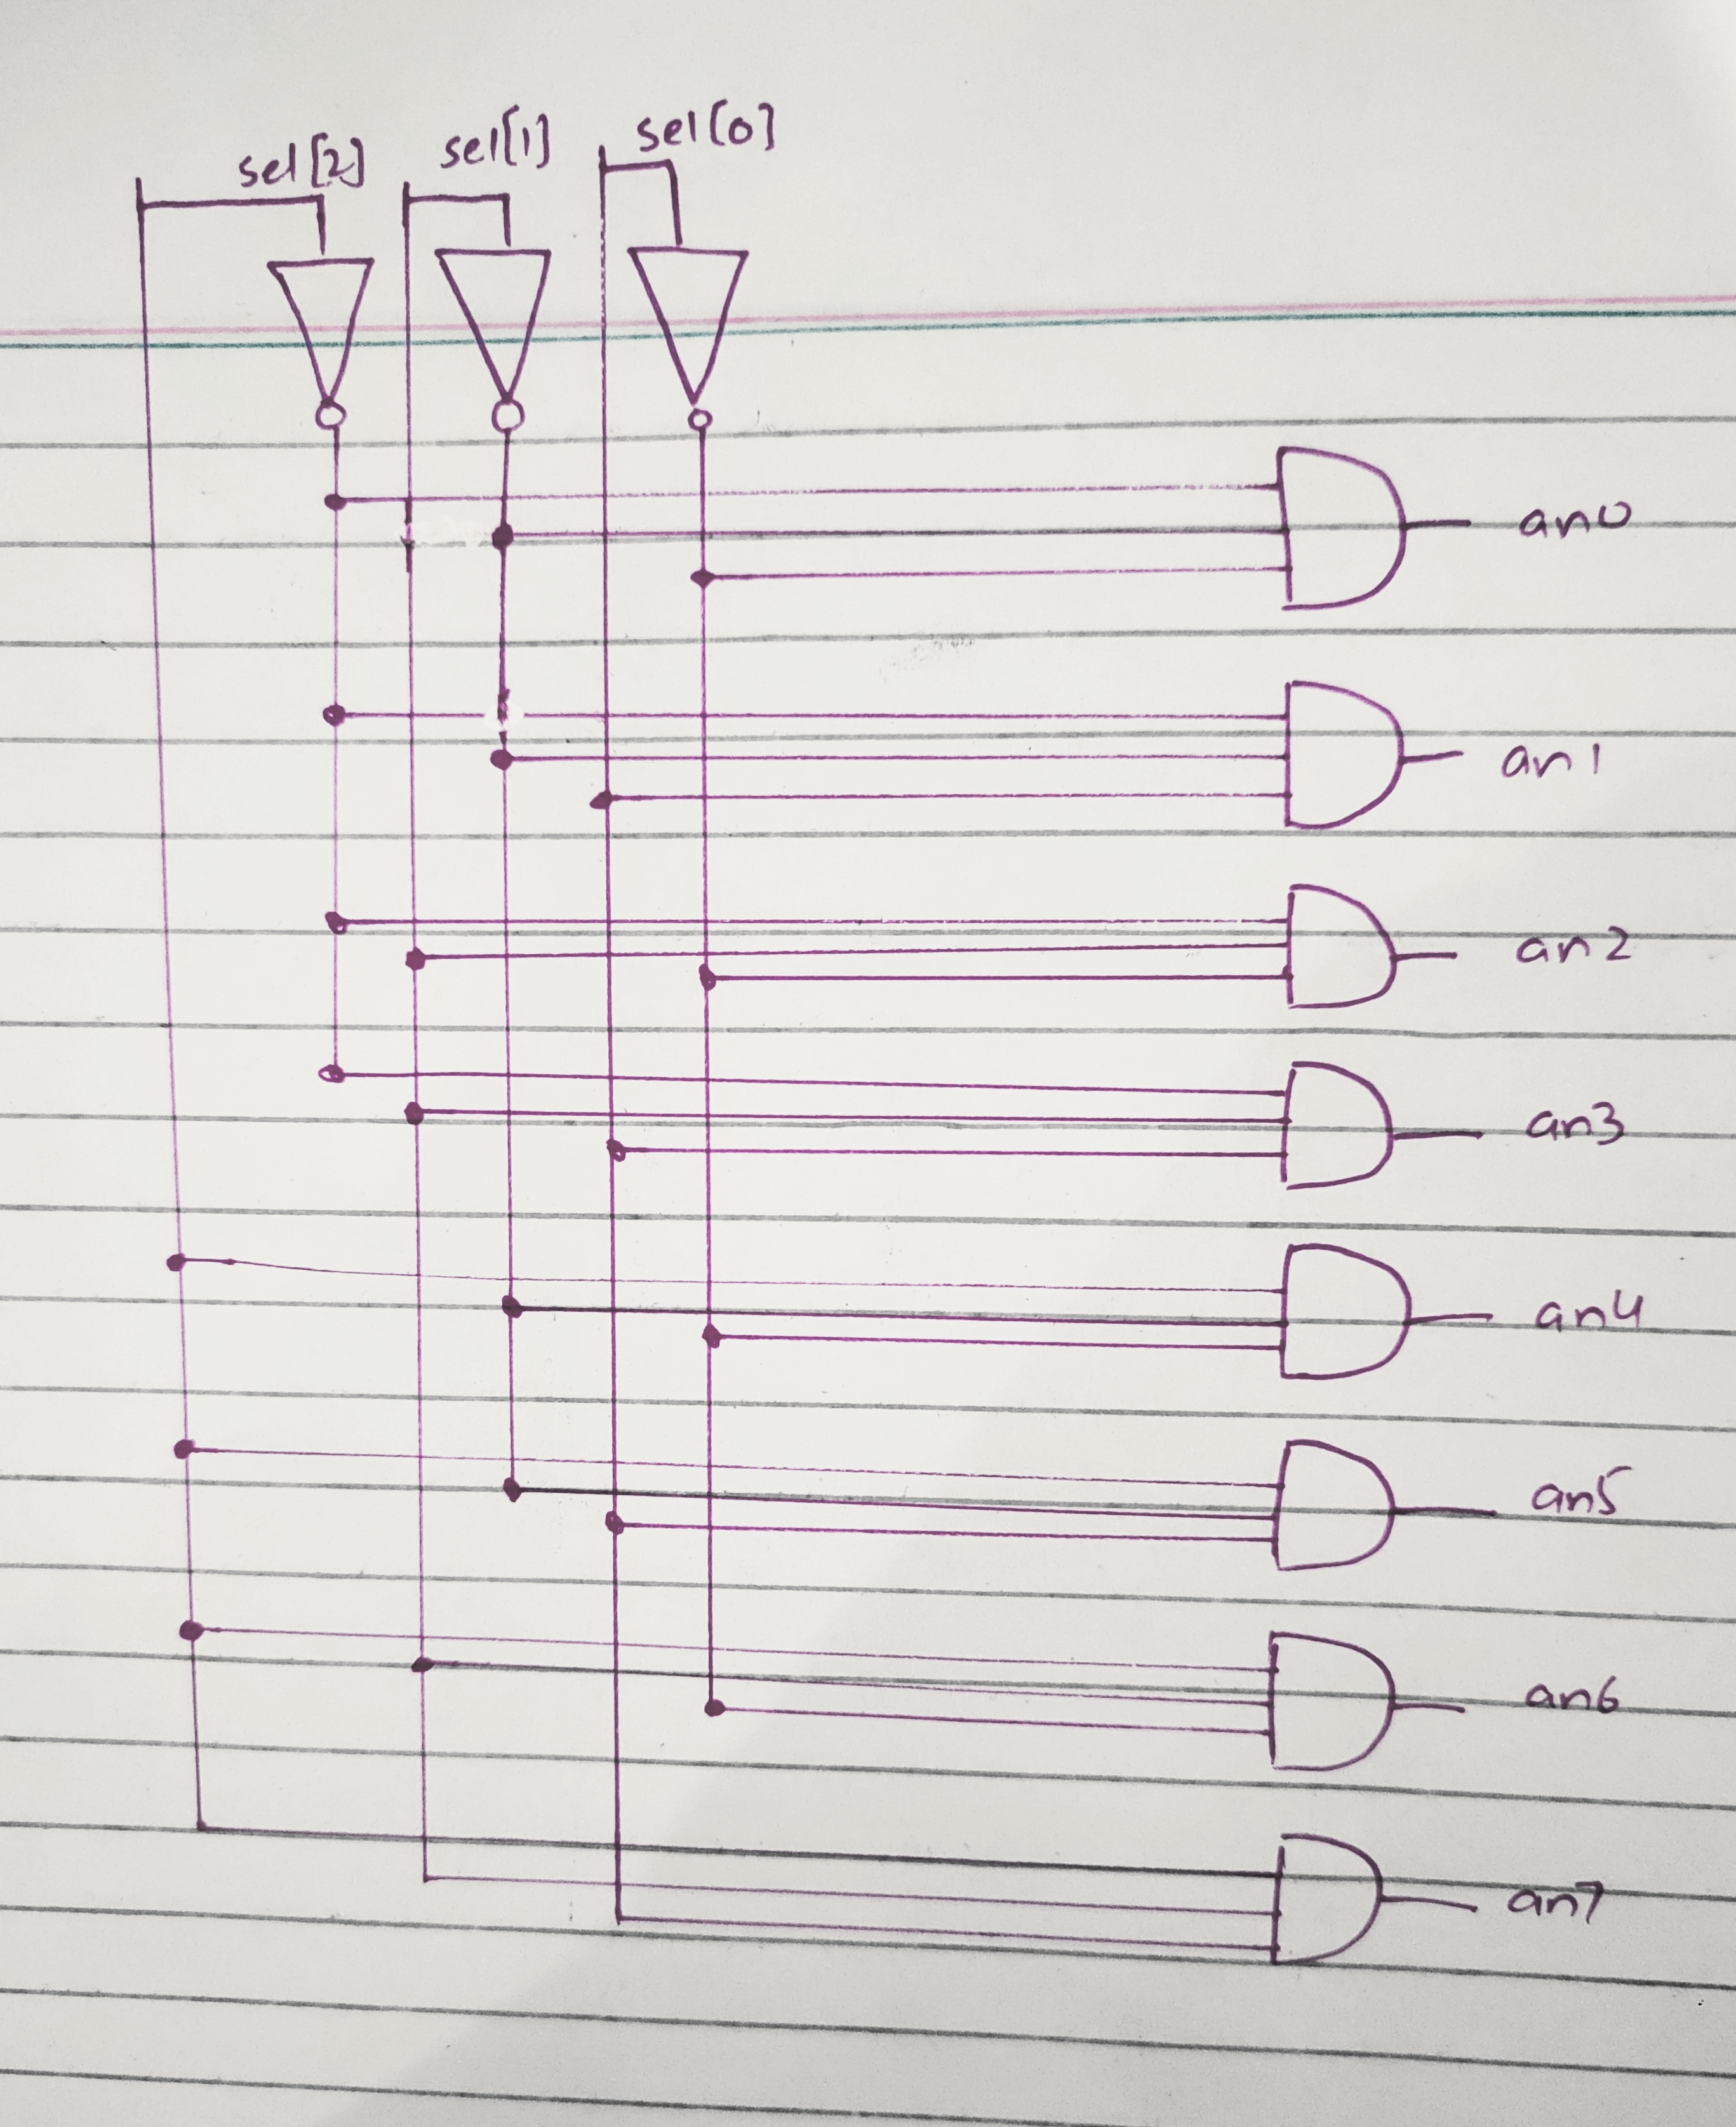 sel[2] sel[1] sel[0]
an0
an1
an2
an3
an4
an5
an6
an7